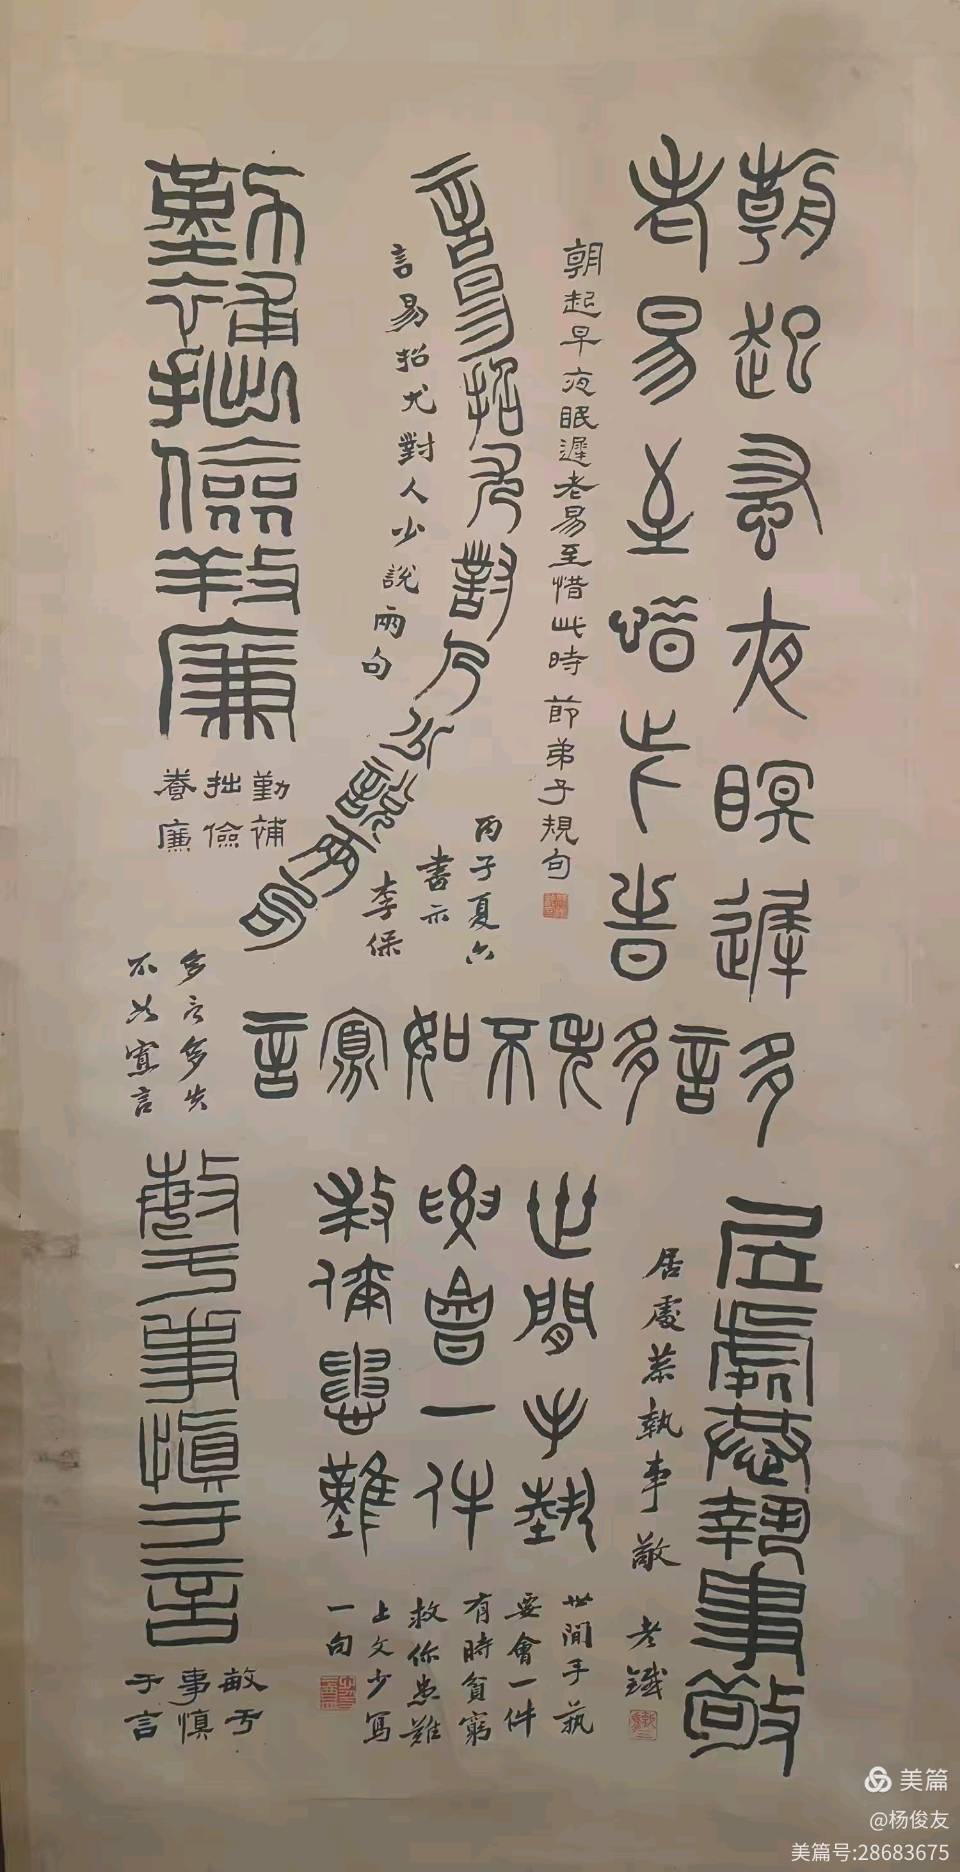 朝起早夜眠遲
老易至惜此時
朝起早夜眠遲老易至惜此時 節弟子規句
言易招尤對人少說兩句
言易招尤對人少說兩句
丙子夏六
書示
李保
勤補拙儉養廉
勤補
拙儉
養廉
多言多失不如寡言
多言多失
不如寡言
居處恭執事敬
居處恭執事敬 老鐵
世間手藝
要會一件
救你患難
世間手藝
要會一件
有時貧窮
救你患難
上文少寫
一句
敏于事慎于言
敏于
事慎
于言
美篇
@杨俊友
美篇号:28683675